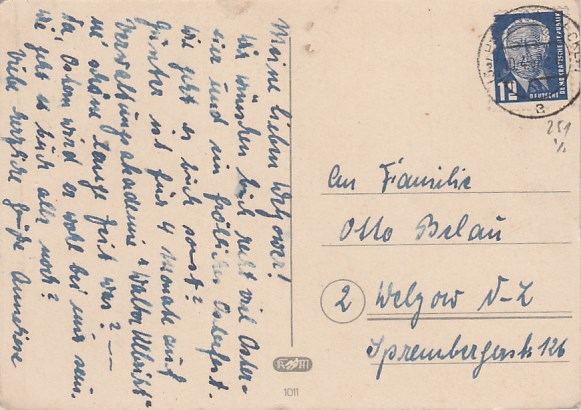 Meine lieben Welzower!
Wir wünschen Euch recht viel Oster-
eier und ein fröhliches Osterfest.
Wie geht es Euch sonst?
Günter ist für 4 Monate auf
Verwaltungsakademie "Walter Ulbricht"
ne schöne lange Zeit was? —
Na, Ostern wird er wohl bei uns sein.
Wie geht es Euch allen noch?
Viele herzliche Grüße Annerose
DEUTSCHE DEMOKRATISCHE REPUBLIK
12
a
251
1/2
An Familie
Otto Belau
2 Welzow N-L
Sprembergerstr 126
1011